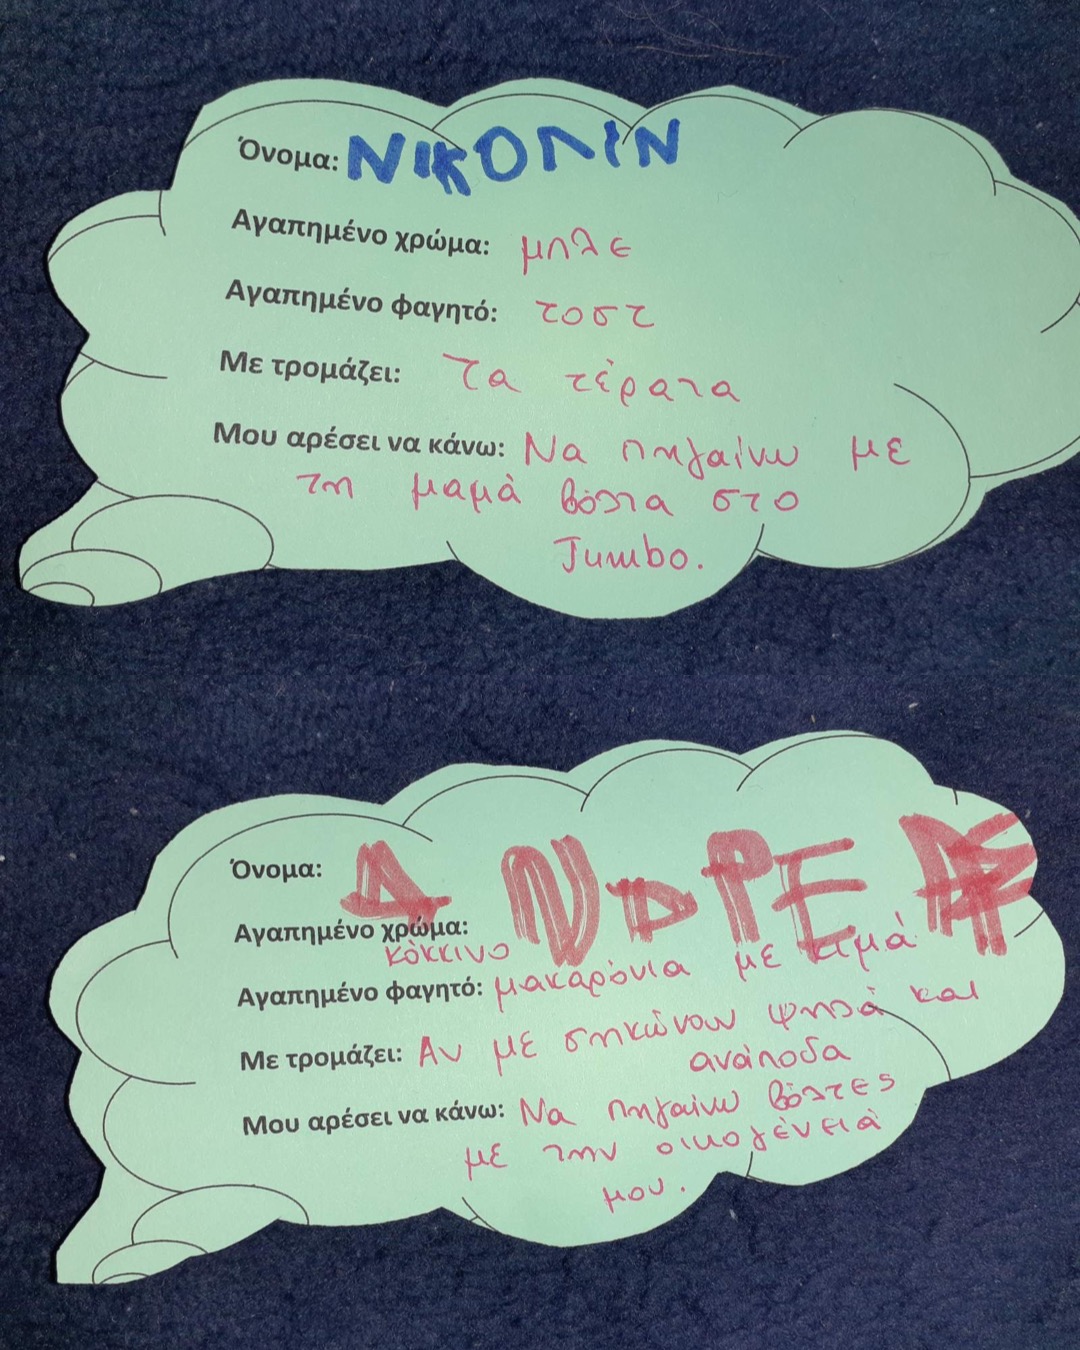 Όνομα: ΝΙΚΟΛΙΝ
Αγαπημένο χρώμα: μπλε
Αγαπημένο φαγητό: τοστ
Με τρομάζει: Τα τέρατα
Μου αρέσει να κάνω: Να πηγαίνω με
τη μαμά βόλτα στο
Jumbo.
Όνομα: ΑΝΔΡΕΑ
Αγαπημένο χρώμα:
κόκκινο
Αγαπημένο φαγητό: μακαρόνια με κιμά
Με τρομάζει: Αν με σηκώνουν ψηλά και
ανάποδα
Μου αρέσει να κάνω: Να πηγαίνω βόλτες
με την οικογένειά
μου.